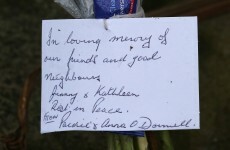 In loving memory of
our friends and good
neighbours
Jimmy & Kathleen
Rest in Peace.
From Padic & Anna O Donnell.